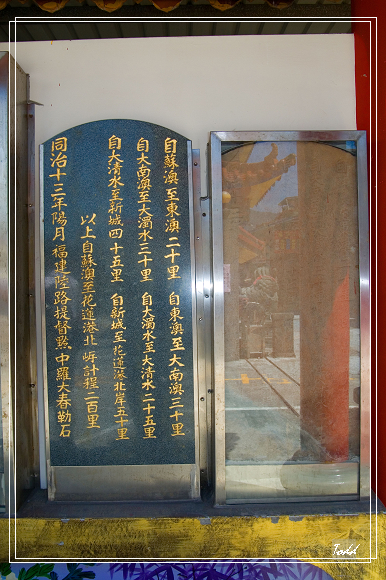 自蘇澳至東澳二十里 自東澳至大南澳三十里
自大南澳至大濁水三十里 自大濁水至大清水二十五里
自大清水至新城四十五里 自新城至花蓮港北岸五十里
以上自蘇澳至花蓮港北岸計程二百里
同治十三年陽月福建陸路提督黔中羅大春勒石
Todd